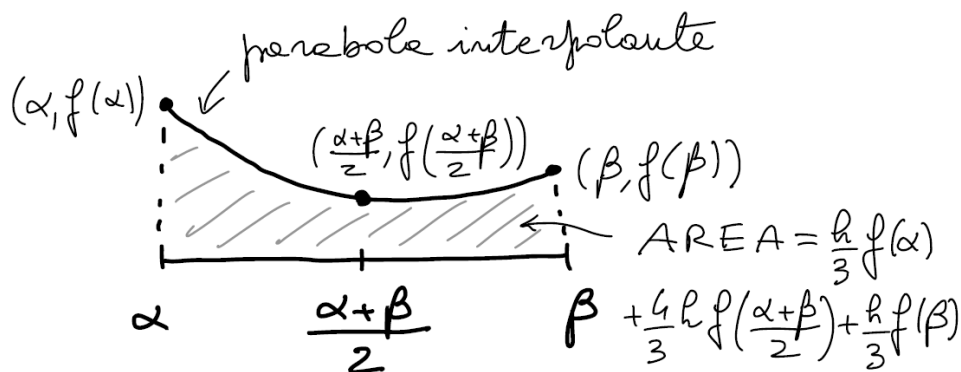 parabola interpolante
(α, f(α))
(α+β/2, f(α+β/2))
(β, f(β))
AREA = h/3 f(α)
+ 4/3 h f(α+β/2) + h/3 f(β)
α
α+β/2
β